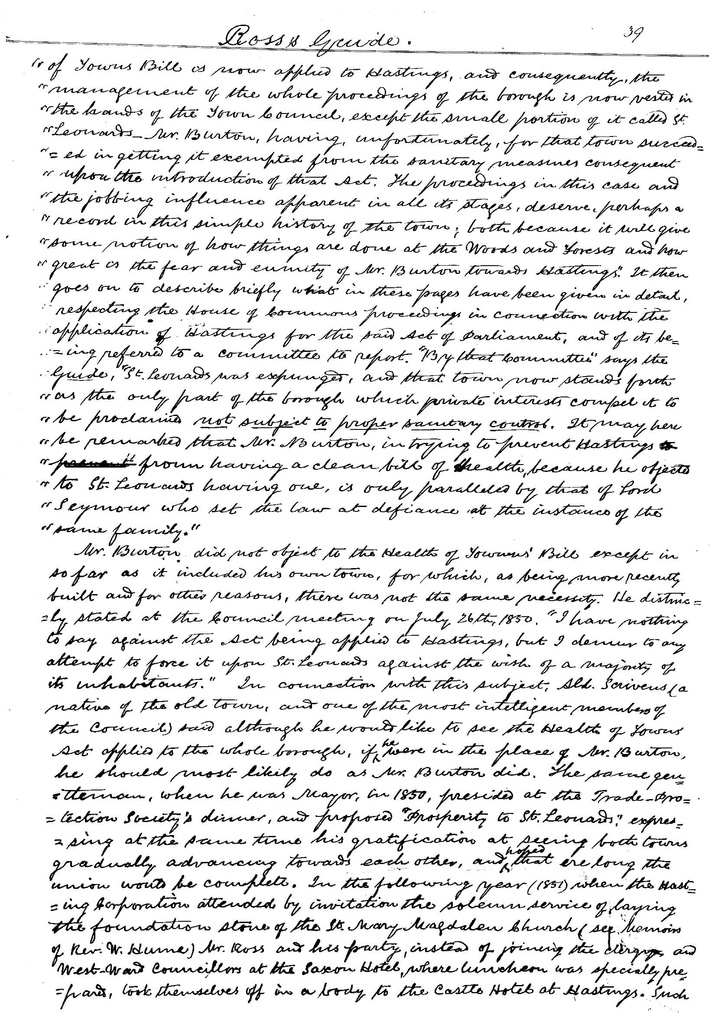 Ross's Guide.
39
"of Towns Bill is now applied to Hastings, and consequently, the
"management of the whole proceedings of the borough is now vested in
"the hands of the Town Council, except the small portion of it called St.
"Leonards – Mr. Burton, having, unfortunately, for that town succeed=
"=ed in getting it exempted from the sanitary measures consequent
"upon the introduction of that Act. The proceedings in this case and
"the jobbing influence apparent in all its stages, deserve, perhaps a
"record in this simple history of the town; both because it will give
"some notion of how things are done at the Woods and Forests and how
"great is the fear and enmity of Mr. Burton towards Hastings." It then
goes on to describe briefly what in these pages have been given in detail,
respecting the House of Commons proceedings in connection with the
application of Hastings for the said Act of Parliament, and of its be-
=ing referred to a committee to report. "By that Committee" says the
Guide, "St. Leonards was expunged, and that town now stands forth
"as the only part of the borough which private interests compel it to
"be proclaimed not subject to proper sanitary control. It may here
"be remarked that Mr. Burton, in trying to prevent Hastings to
"prevent" from having a clean bill of health, because he objects
"to St. Leonards having one, is only paralleled by that of Lord
"Seymour who set the law at defiance at the instance of the
"same family."
Mr. Burton did not object to the Health of Towns' Bill except in
so far as it included his own town, for which, as being more recently
built and for other reasons, there was not the same necessity. He distinc=
=ly stated at the Council meeting on July 26th, 1850. "I have nothing
to say against the Act being applied to Hastings, but I demur to any
attempt to force it upon St. Leonards against the wish of a majority of
its inhabitants." In connection with this subject, Ald. Scrivens (a
native of the old town, and one of the most intelligent members of
the Council) said although he would like to see the Health of Towns'
Act applied to the whole borough, if he were in the place of Mr. Burton,
he should most likely do as Mr. Burton did. The same gen=
=tleman, when he was Mayor, in 1850, presided at the Trade-Pro=
=tection Society's dinner, and proposed "Prosperity to St. Leonards," expres=
=sing at the same time his gratification at seeing both towns
gradually advancing towards each other, and hoped that ere long the
union would be complete. In the following year (1851) when the Hast=
=ing Corporation attended by invitation the solemn service of laying
the foundation stone of the St. Mary Magdalen Church (see Memoirs
of Rev. W. Hume) Mr. Ross and his party, instead of joining the clergy and
West-Ward Councillors at the Saxon Hotel, where luncheon was specially pre=
=pared, took themselves off in a body to the Castle Hotel at Hastings. Such